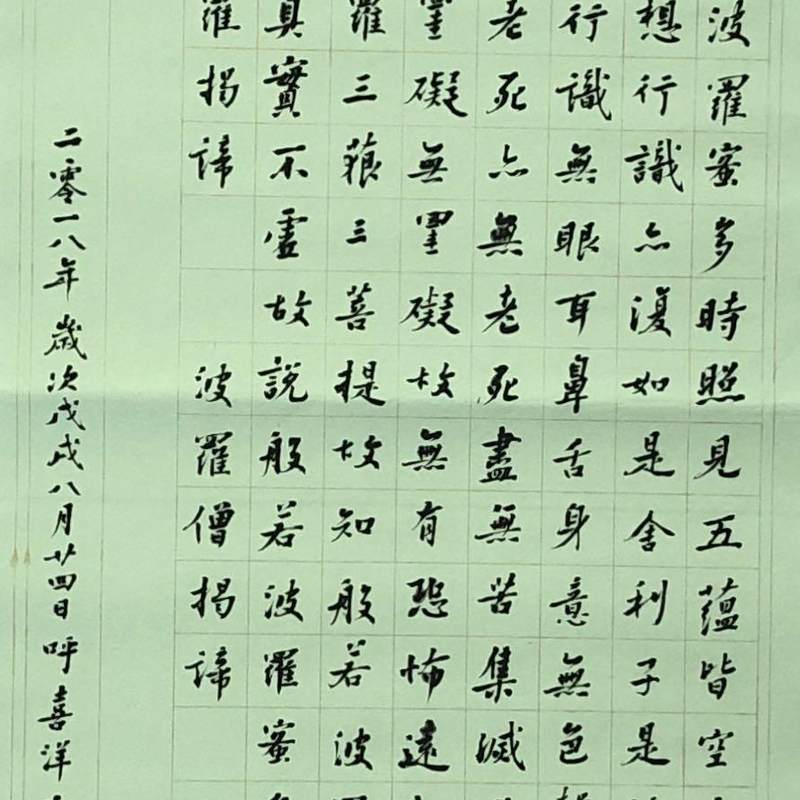 波羅蜜多時照見五蘊皆空
想行識亦復如是舍利子是
行識無眼耳鼻舌身意無色
老死亦無老死盡無苦集滅
罣礙無罣礙故無有恐怖遠
羅三藐三菩提故知般若波
真實不虛故說般若波羅蜜
羅揭諦 波羅僧揭諦
二零一八年歲次戊戌八月廿四日呼喜洋